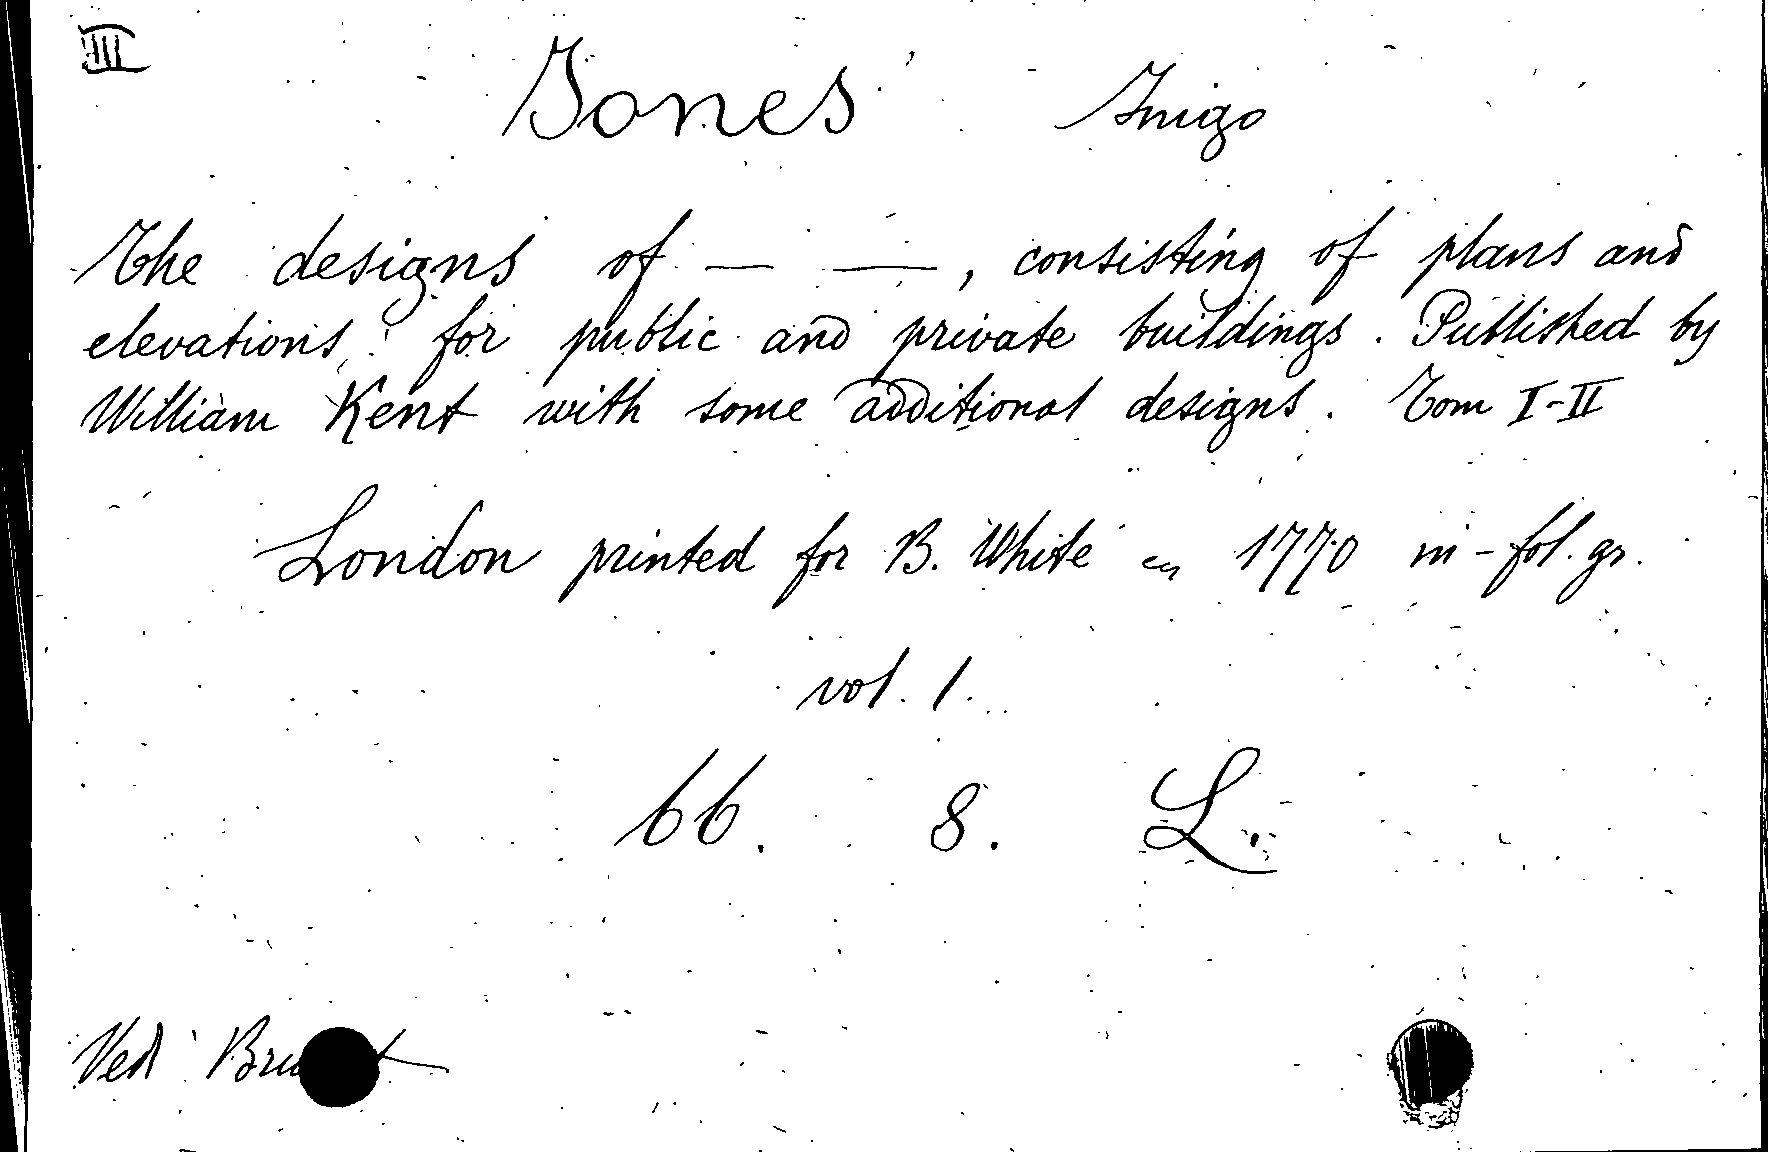 III
Jones Inigo
The designs of — —, consisting of plans and
elevations for public and private buildings. Published by
William Kent with some additional designs. Tom I-II
London printed for B. White 1770 in-fol. gr.
vol. 1.
66. 8. L.
Ved